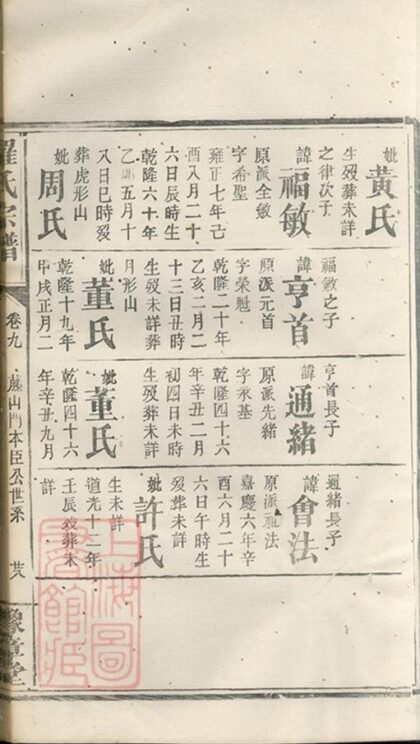 妣黃氏
生歿葬未詳
之律次子
諱福敏
原派全敏
字希聖
雍正七年己
酉八月二十
六日辰時生
乾隆六十年
乙卯五月十
八日巳時歿
葬虎形山
妣周氏
福敏之子
諱亨首
原派元首
字榮魁
乾隆二十年
乙亥二月二
十三日丑時
生歿未詳葬
月形山
妣董氏
乾隆十九年
甲戌正月二
亨首長子
諱通緒
原派先緒
字承基
乾隆四十六
年辛丑二月
初四日未時
生歿葬未詳
妣董氏
乾隆四十六
年辛丑九月
通緒長子
諱會法
原派 法
嘉慶六年辛
酉六月二十
六日午時生
歿葬未詳
妣許氏
生未詳
道光十二年
壬辰歿葬未
詳
羅氏宗譜
卷九
本臣公世系
豫章堂
上海圖
書館藏